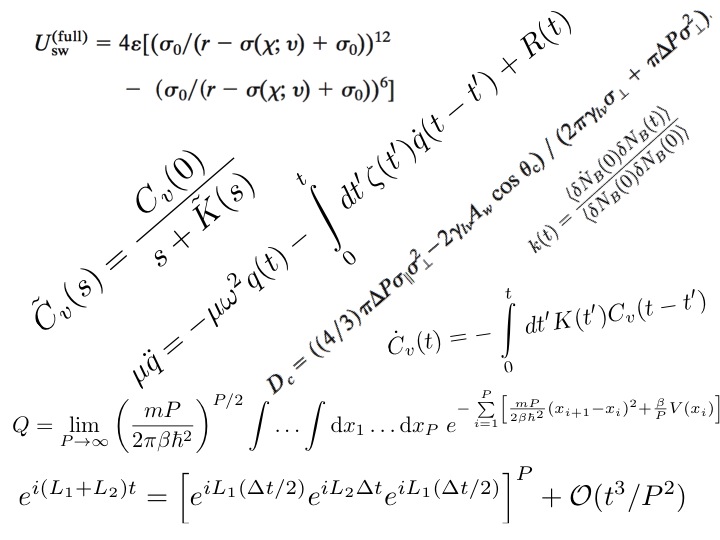 U_sw^(full) = 4ε[(σ₀/(r − σ(χ; υ) + σ₀))¹²
− (σ₀/(r − σ(χ; υ) + σ₀))⁶]
C̃_v(s) = C_v(0) / (s + K̃(s))
μq̈ = −μω²q(t) − ∫₀ᵗ dt′ζ(t′)q̇(t − t′) + R(t)
D_c = ((4/3)πΔPσ_∥σ_⊥² − 2γ_lv A_w cos θ_c) / (2πγ_lv σ_⊥ + πΔPσ_⊥²).
k(t) = ⟨δṄ_B(0)δN_B(t)⟩ / ⟨δN_B(0)δN_B(0)⟩
Ċ_v(t) = − ∫₀ᵗ dt′K(t′)C_v(t − t′)
Q = lim_{P→∞} (mP / 2πβħ²)^{P/2} ∫ … ∫ dx₁ … dx_P e^{− Σ_{i=1}^{P} [mP/2βħ² (x_{i+1} − x_i)² + β/P V(x_i)]}
e^{i(L₁+L₂)t} = [e^{iL₁(Δt/2)} e^{iL₂Δt} e^{iL₁(Δt/2)}]^P + 𝒪(t³/P²)